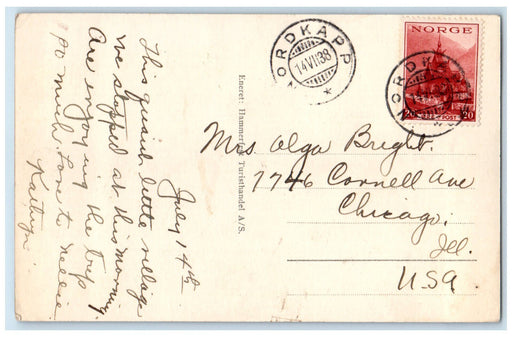 July 14th
This quaint little village
we stopped at this morning
Are enjoying the trip
so much. Love to Nellie
Kathryn
Eneret: Hammerfest Turisthandel A/S.
NORDKAPP
14 VII 38
NORGE
20 POST 20
Mrs. Olga Bright.
7746 Cornell Ave
Chicago,
Ill.
USA